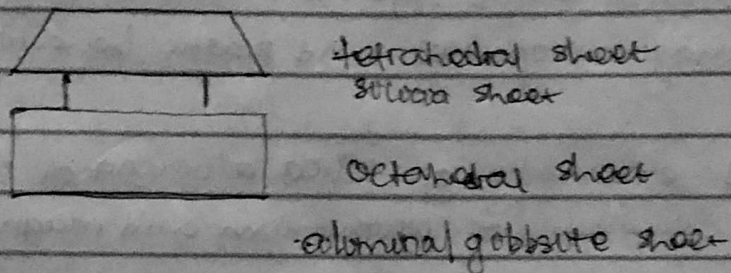 tetrahedral sheet
silicaa sheet
octahedral sheet
aluminal gobbsite sheet